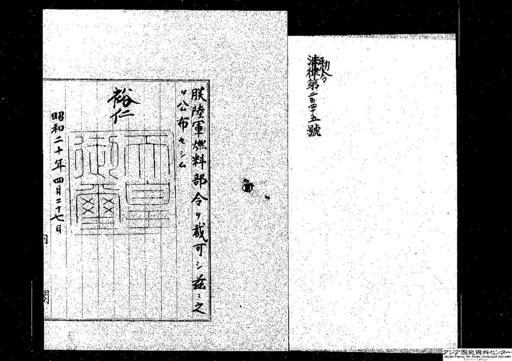 勅令
第二百四十五號
朕陸軍燃料部令ヲ裁可シ茲ニ之
ヲ公布セシム
裕仁
天皇御璽
昭和二十年四月二十七日
内閣
アジア歴史資料センター